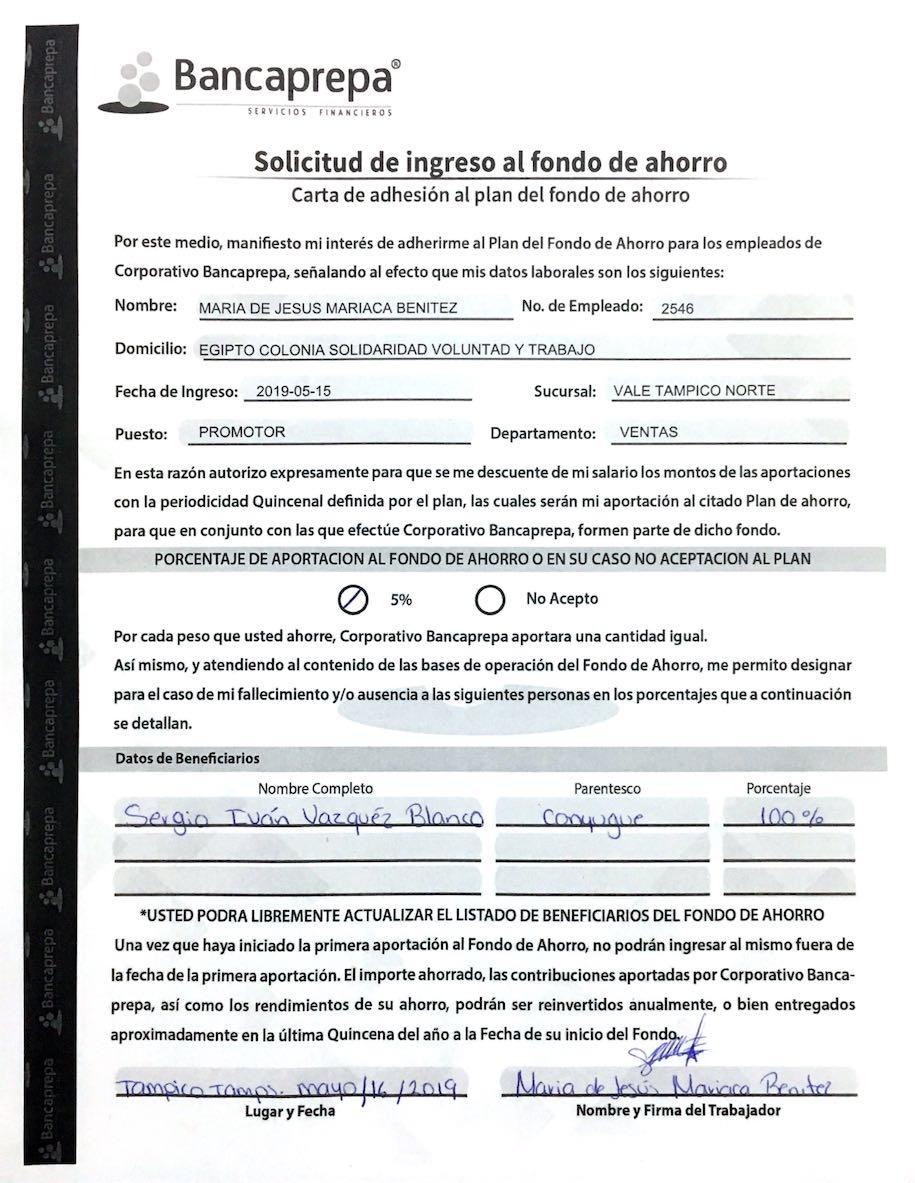 Bancaprepa®
SERVICIOS FINANCIEROS
Solicitud de ingreso al fondo de ahorro
Carta de adhesión al plan del fondo de ahorro
Por este medio, manifiesto mi interés de adherirme al Plan del Fondo de Ahorro para los empleados de
Corporativo Bancaprepa, señalando al efecto que mis datos laborales son los siguientes:
Nombre: MARIA DE JESUS MARIACA BENITEZ No. de Empleado: 2546
Domicilio: EGIPTO COLONIA SOLIDARIDAD VOLUNTAD Y TRABAJO
Fecha de Ingreso: 2019-05-15 Sucursal: VALE TAMPICO NORTE
Puesto: PROMOTOR Departamento: VENTAS
En esta razón autorizo expresamente para que se me descuente de mi salario los montos de las aportaciones
con la periodicidad Quincenal definida por el plan, las cuales serán mi aportación al citado Plan de ahorro,
para que en conjunto con las que efectúe Corporativo Bancaprepa, formen parte de dicho fondo.
PORCENTAJE DE APORTACION AL FONDO DE AHORRO O EN SU CASO NO ACEPTACION AL PLAN
5% No Acepto
Por cada peso que usted ahorre, Corporativo Bancaprepa aportara una cantidad igual.
Así mismo, y atendiendo al contenido de las bases de operación del Fondo de Ahorro, me permito designar
para el caso de mi fallecimiento y/o ausencia a las siguientes personas en los porcentajes que a continuación
se detallan.
Datos de Beneficiarios
Nombre Completo Parentesco Porcentaje
Sergio Iván Vazquéz Blanco Conyugue 100%
*USTED PODRA LIBREMENTE ACTUALIZAR EL LISTADO DE BENEFICIARIOS DEL FONDO DE AHORRO
Una vez que haya iniciado la primera aportación al Fondo de Ahorro, no podrán ingresar al mismo fuera de
la fecha de la primera aportación. El importe ahorrado, las contribuciones aportadas por Corporativo Banca-
prepa, así como los rendimientos de su ahorro, podrán ser reinvertidos anualmente, o bien entregados
aproximadamente en la última Quincena del año a la Fecha de su inicio del Fondo.
Tampico Tamps. mayo/16/2019 Maria de Jesús Mariaca Benitez
Lugar y Fecha Nombre y Firma del Trabajador
Bancaprepa
Bancaprepa
Bancaprepa
Bancaprepa
Bancaprepa
Bancaprepa
Bancaprepa
Bancaprepa
Bancaprepa